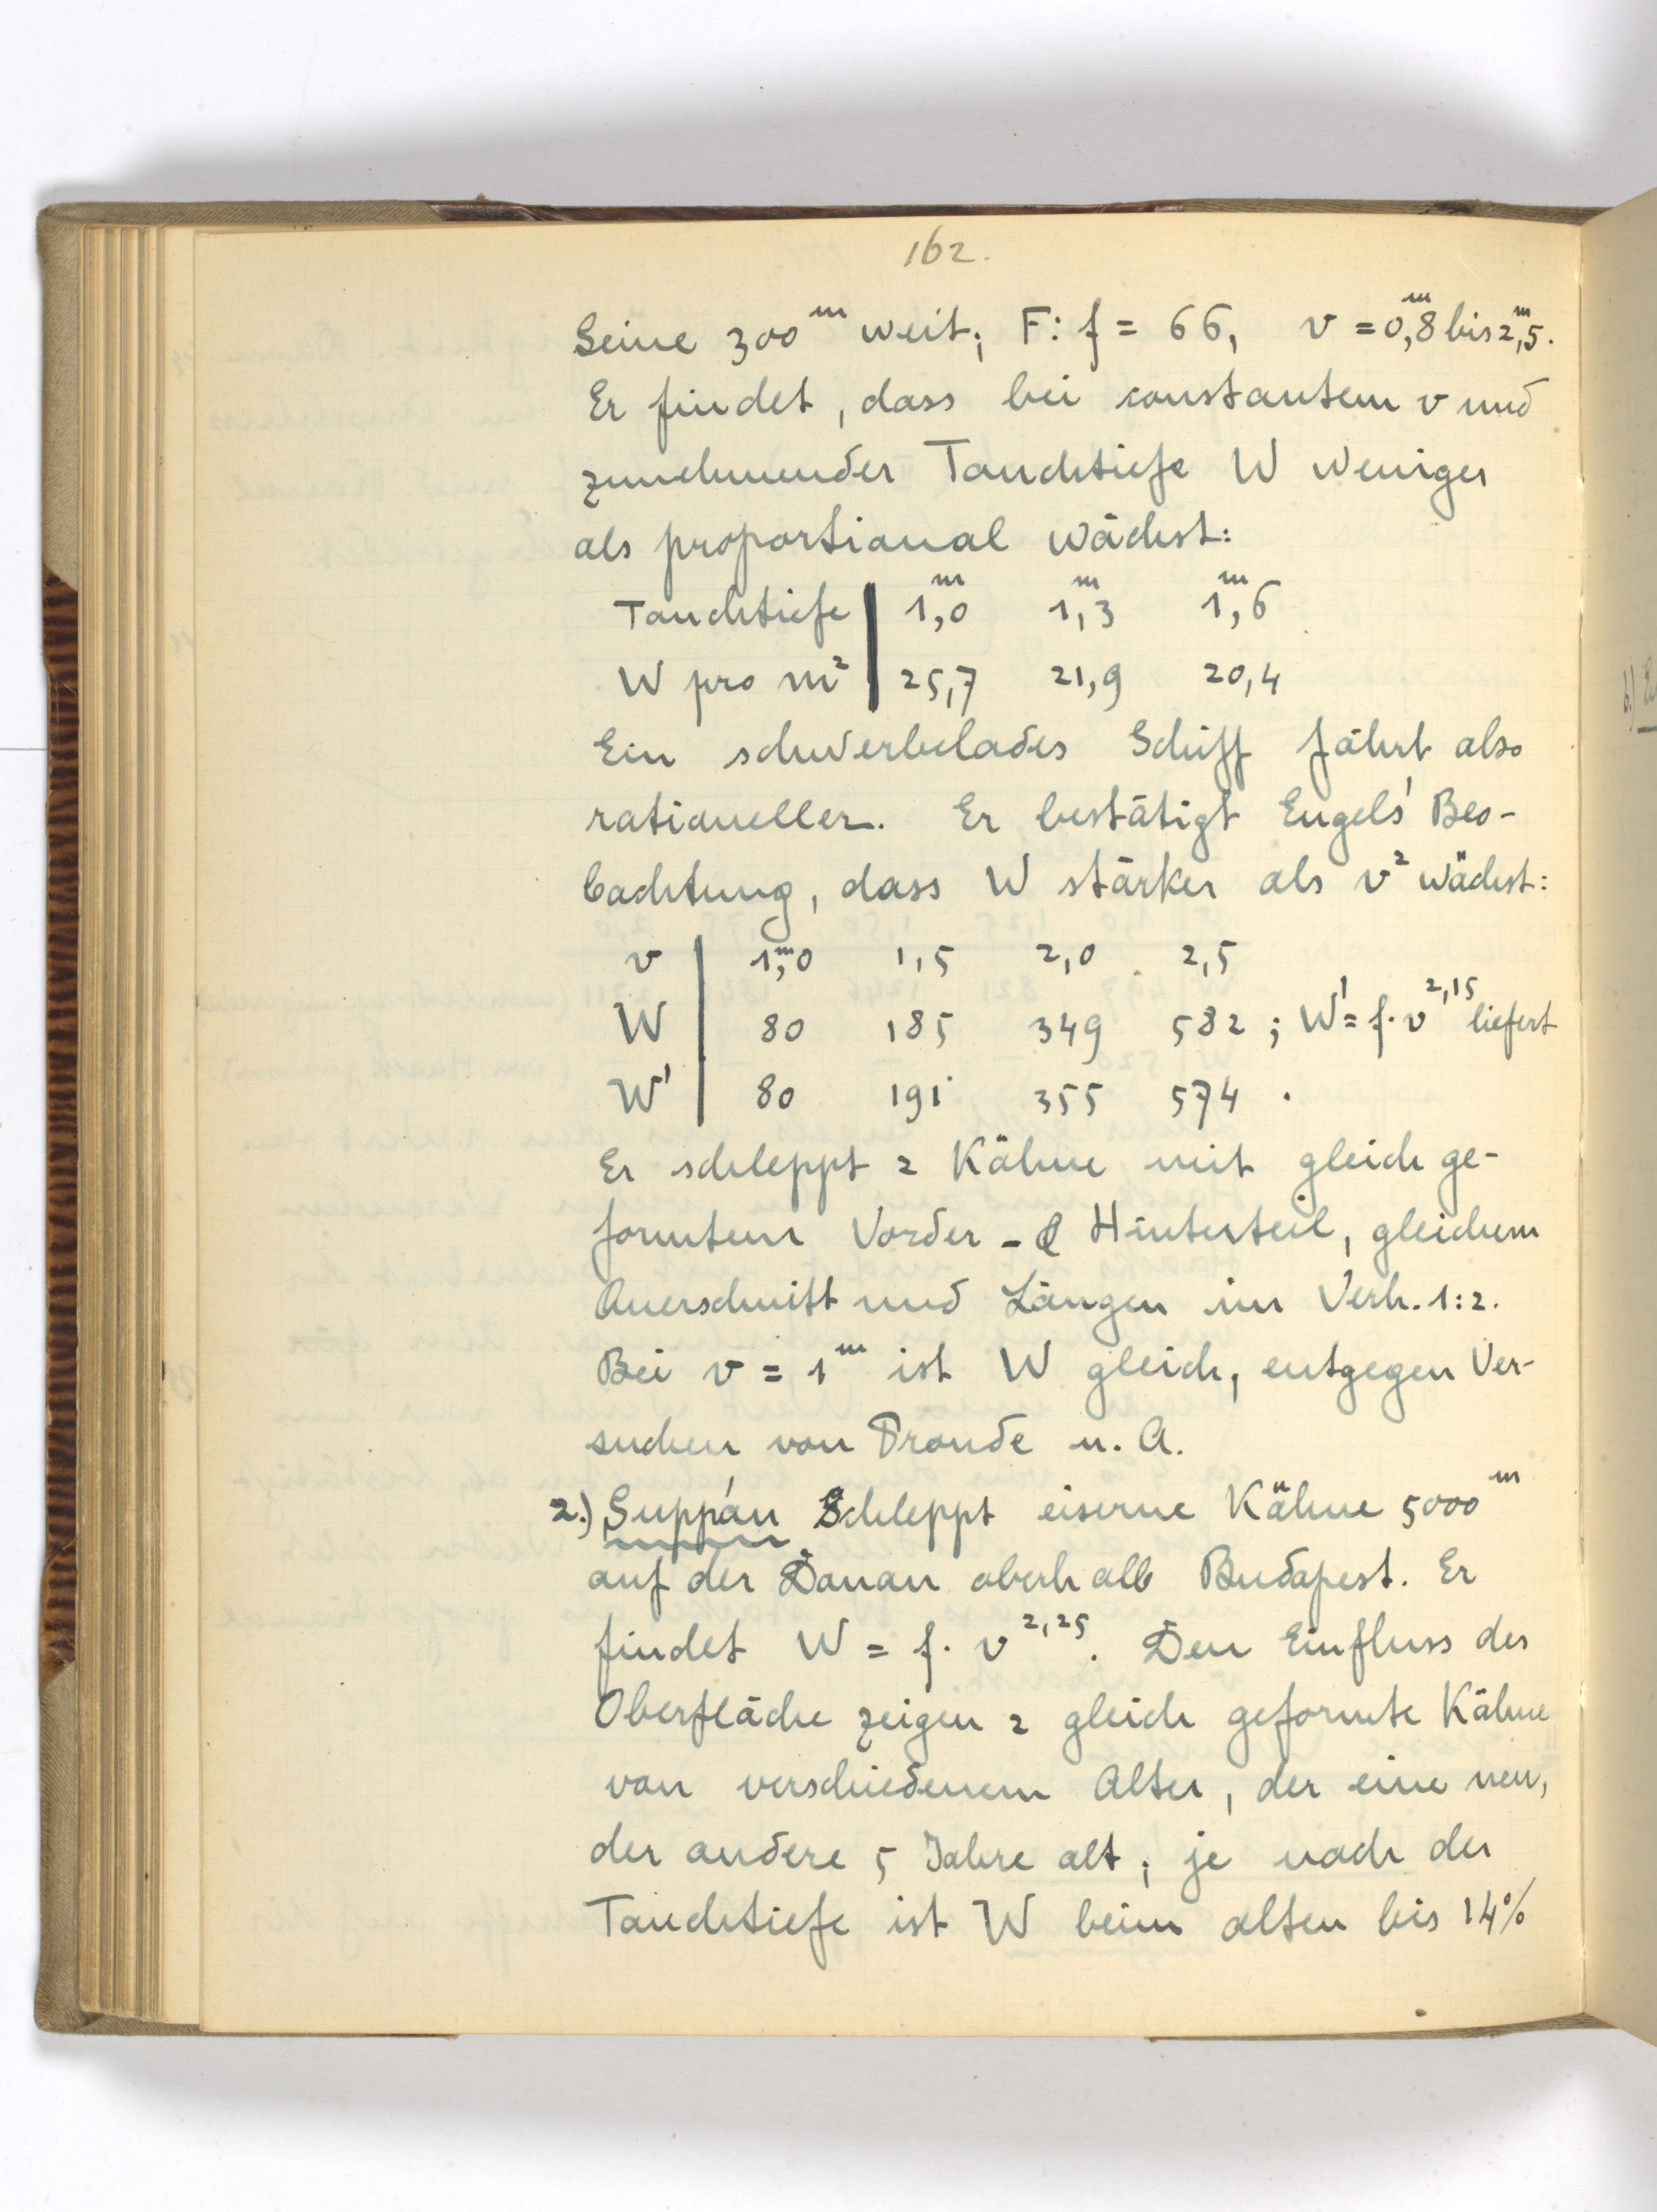 162.
Seine 300 m weit; F: f = 66, v = 0,8 m bis 2,5 m.
Er findet, dass bei constantem v und
zunehmender Tauchtiefe W weniger
als proportional wächst:
Tauchtiefe | 1,0 m 1,3 m 1,6 m
W pro m² | 25,7 21,9 20,4
Ein schwerbelades Schiff fährt also
rationeller. Er bestätigt Engels' Beo-
bachtung, dass W stärker als v² wächst:
v | 1,0 m 1,5 2,0 2,5
W | 80 185 349 582 ; W' = f. v^2,15 liefert
W' | 80 191 355 574 .
Er schleppt 2 Kähne mit gleich ge-
formtem Vorder - & Hinterteil, gleichem
Querschnitt und Längen im Verh. 1:2.
Bei v = 1 m ist W gleich, entgegen Ver-
suchen von Froude u. A.
2.) Suppán Schleppt eiserne Kähne 5000 m
auf der Donau oberhalb Budapest. Er
findet W = f. v^2,25. Den Einfluss der
Oberfläche zeigen 2 gleich geformte Kähne
von verschiedenem Alter, der eine neu,
der andere 5 Jahre alt; je nach der
Tauchtiefe ist W beim alten bis 14%